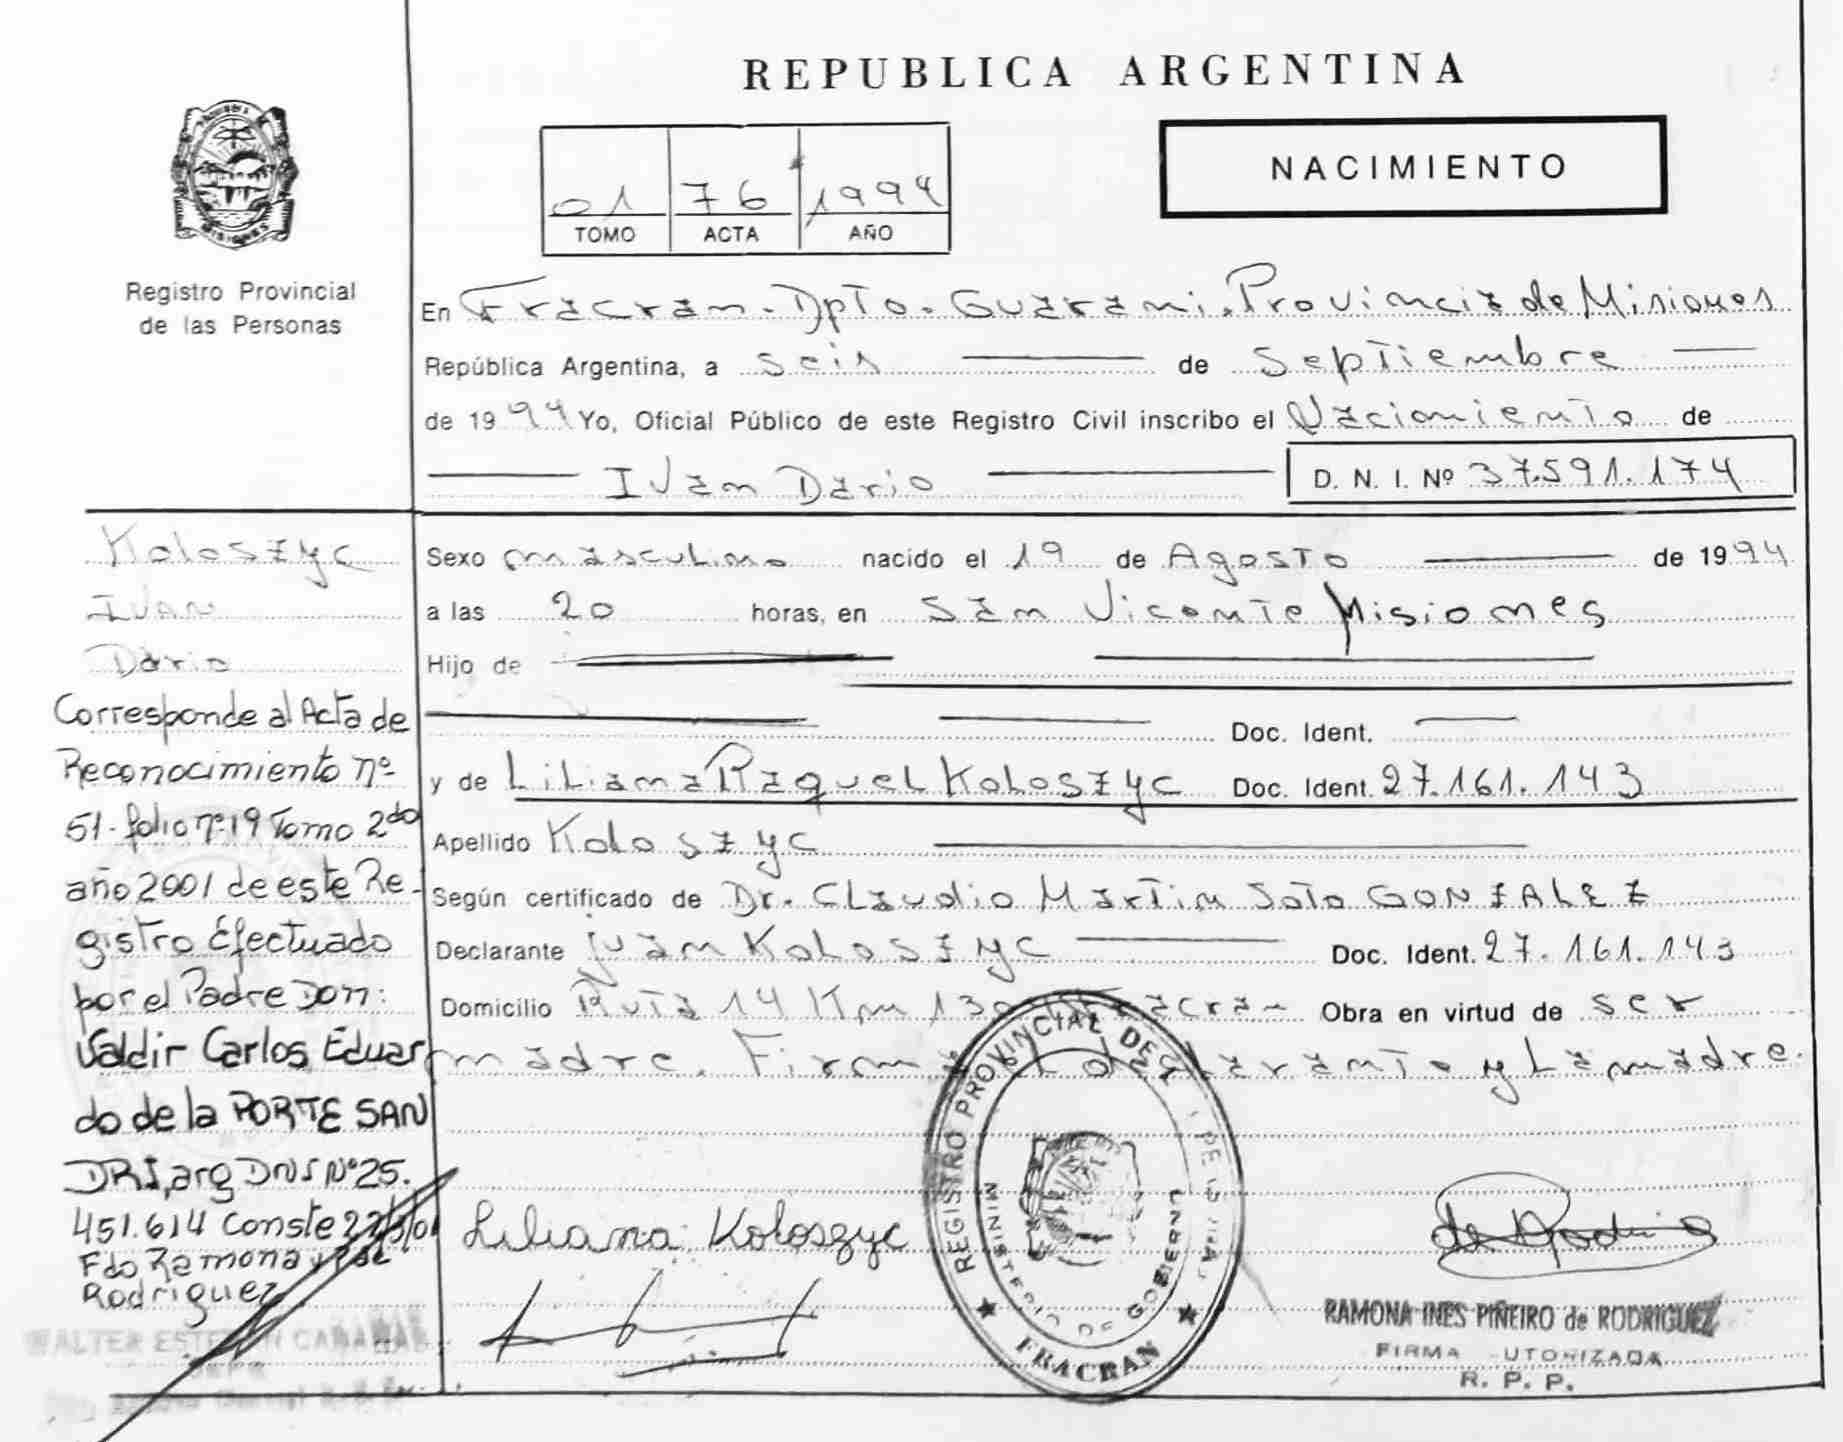 REPUBLICA ARGENTINA
NACIMIENTO
01 76 1994
TOMO ACTA AÑO
Registro Provincial
de las Personas
En Fracran. Dpto. Guarani. Provincia de Misiones
República Argentina, a seis de Septiembre
de 1994 Yo, Oficial Público de este Registro Civil inscribo el Nacimiento de
Ivan Dario D. N. I. Nº 37.591.174
Koloszyc
Ivan
Dario
Sexo masculino nacido el 19 de Agosto de 1994
a las 20 horas, en San Vicente Misiones
Hijo de
Doc. Ident.
y de Liliana Raquel Koloszyc Doc. Ident. 27.161.143
Apellido Koloszyc
Según certificado de Dr. Claudio Martin Soto GONZALEZ
Declarante juan Koloszyc Doc. Ident. 27.161.143
Domicilio Ruta 14 Km 130 Fracran Obra en virtud de ser
madre. Firma el declarante y La madre.
Corresponde al Acta de
Reconocimiento nº
51- folio nº 19 Tomo 2do
año 2001 de este Re-
gistro Efectuado
por el Padre Don:
Valdir Carlos Eduar
do de la PORTE SAN
DRI, arg DNI Nº 25.
451.614 Conste
Fdo Ramona
Rodriguez
Liliana Koloszyc
REGISTRO PROVINCIAL DE
MINISTERIO DE GOBIERNO
FRACRAN
de Rodrig
RAMONA INES PIÑEIRO de RODRIGUEZ
FIRMA AUTORIZADA
R. P. P.
WALTER